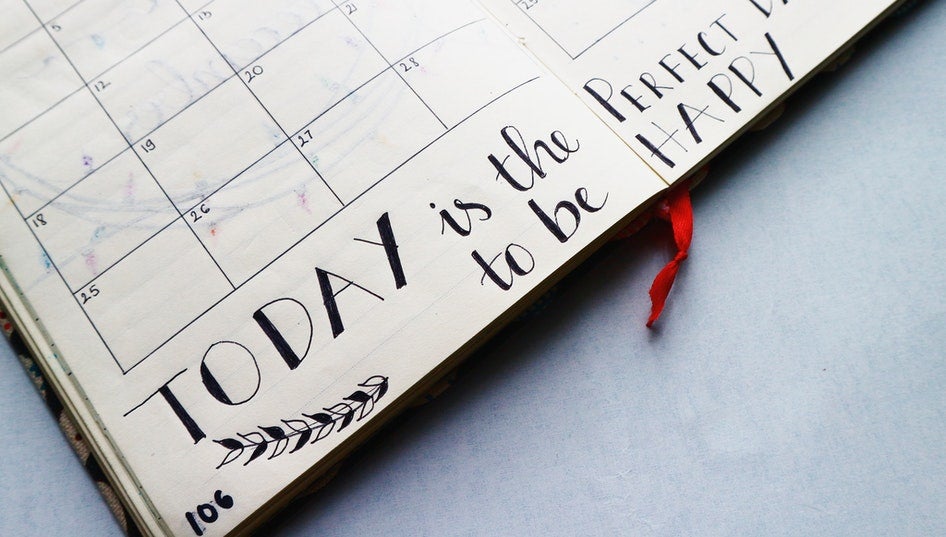 5
12 13
18 19 20 21
25 26 27 28
25
TODAY is the PERFECT
to be HAPPY
106